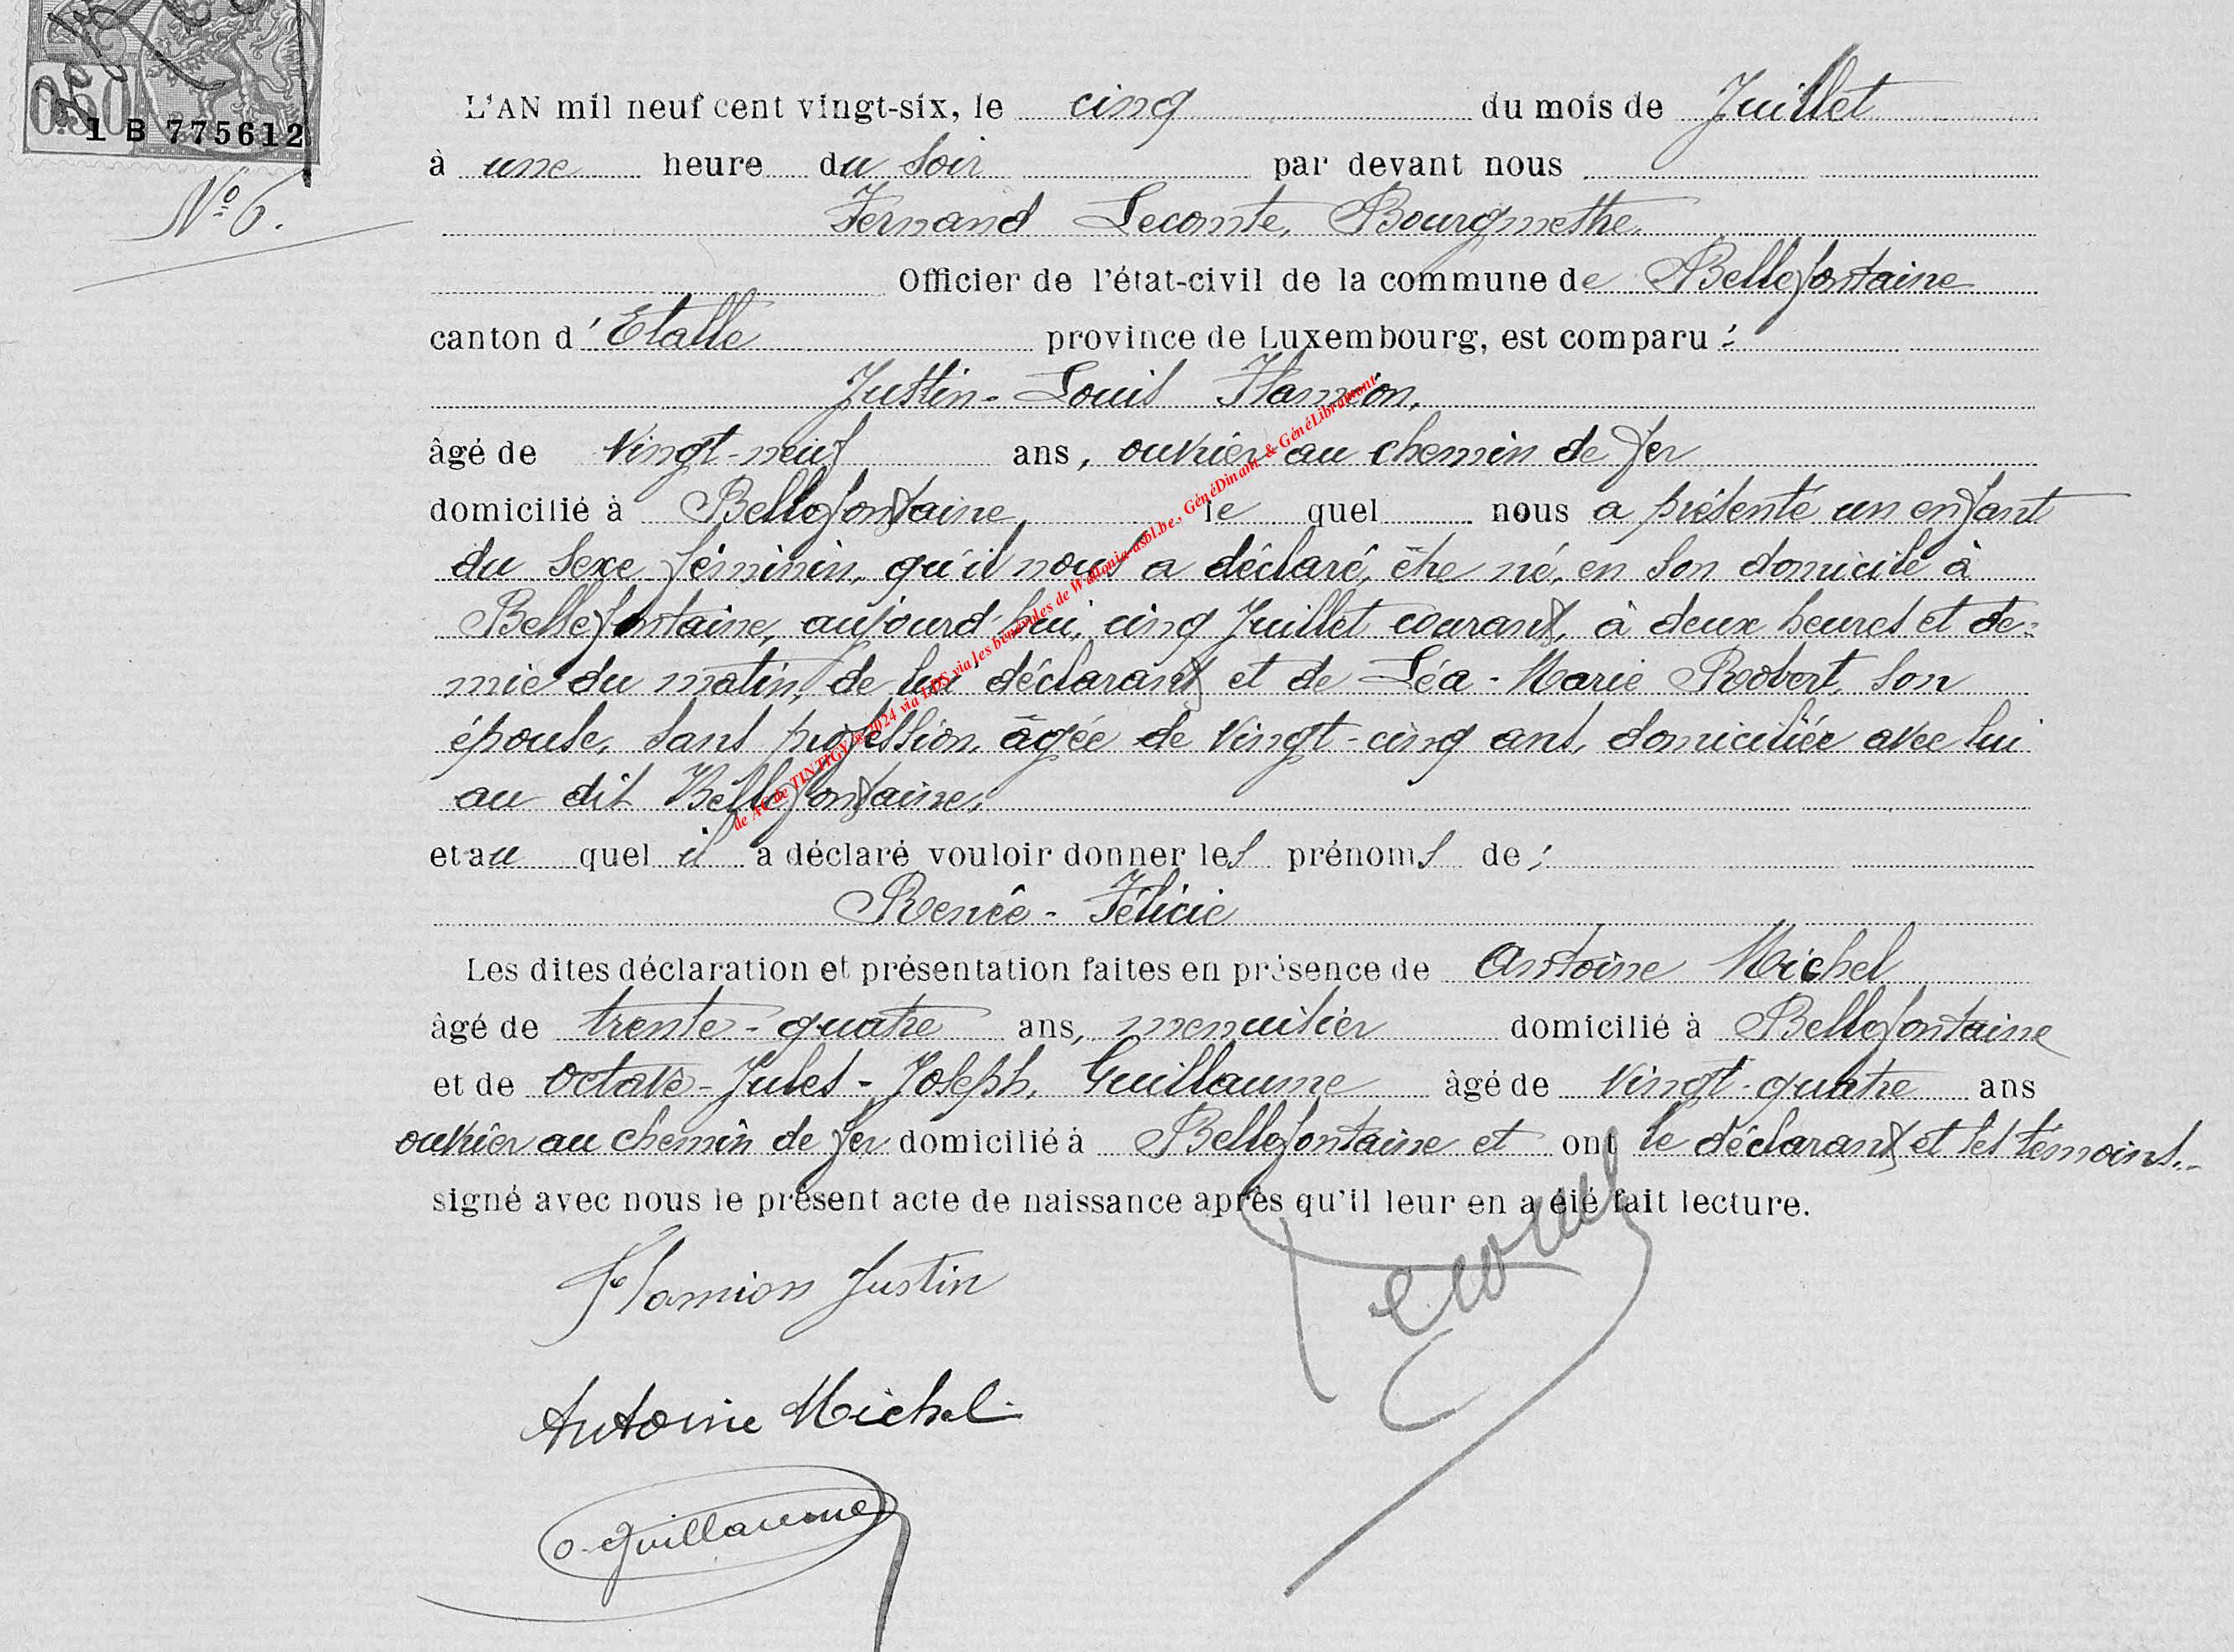 0.50
1 B 775612
N° 6.
L'AN mil neuf cent vingt-six, le cinq du mois de Juillet
à une heure du soir par devant nous
Fernand Lecomte, Bourgmestre,
Officier de l'état-civil de la commune de Bellefontaine
canton d'Etalle province de Luxembourg, est comparu :
Justin-Louis Flamion,
âgé de vingt-neuf ans, ouvrier au chemin de fer
domicilié à Bellefontaine, le quel nous a présenté un enfant
du sexe féminin, qu'il nous a déclaré, être né, en son domicile à
Bellefontaine, aujourd'hui, cinq Juillet courant, à deux heures et de=
mie du matin, de lui déclarant et de Léa-Marie Robert, son
épouse, sans profession, âgée de vingt-cinq ans, domiciliée avec lui
au dit Bellefontaine,
et au quel il a déclaré vouloir donner les prénoms de :
Renée-Félicie
Les dites déclaration et présentation faites en présence de Antoine Michel
âgé de trente-quatre ans, menuisier domicilié à Bellefontaine
et de Octave-Jules-Joseph, Guillaume âgé de vingt-quatre ans
ouvrier au chemin de fer domicilié à Bellefontaine et ont le déclarant et les témoins,
signé avec nous le présent acte de naissance après qu'il leur en a été fait lecture.
Flamion Justin
Lecomte
Antoine Michel
O. Guillaume
de AC de TINTIGY @ 2024 via LDS via les bénévoles de Wallonia-asbl.be, GénéDinant & GénéLibramont